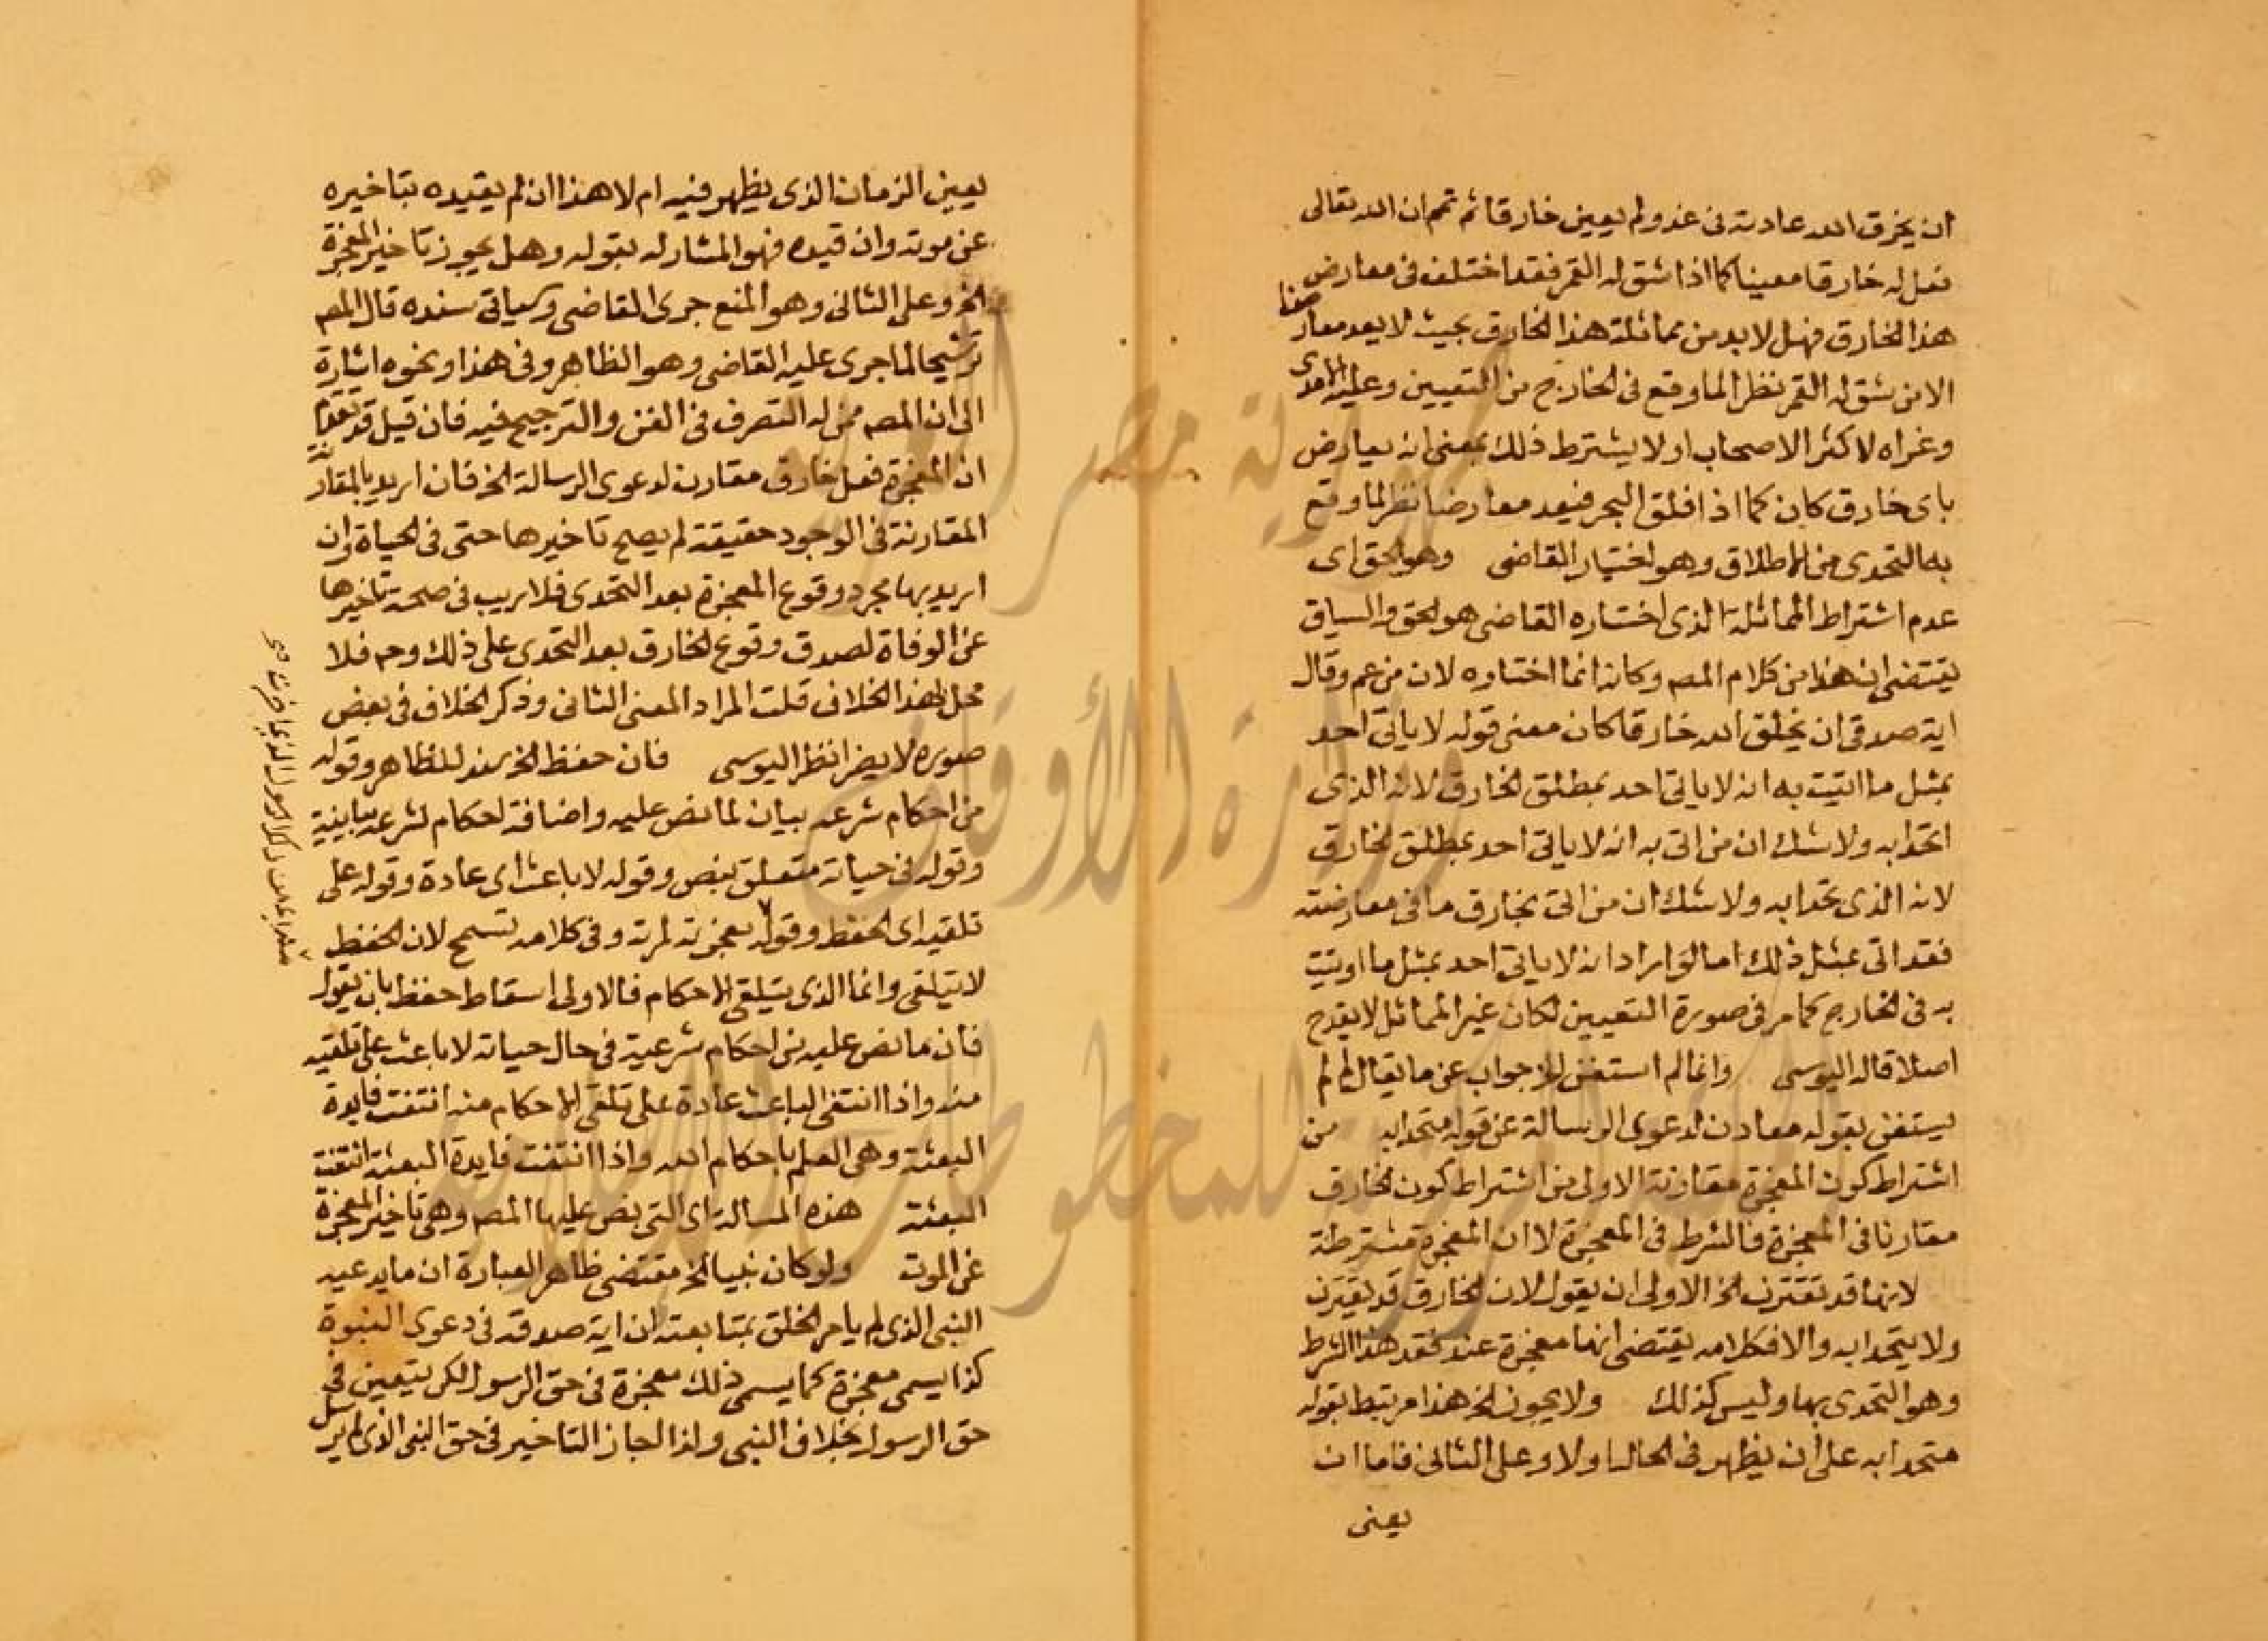 ان يخرق الله عادته فى غد ولم يعين خارقا ثم تمم ان الله تعالى
فعل له خارقا معينا كما اذا شق له القمر فقد اختلف فى معارض
هذا الخارق فهل لا بد من مماثلة هذا الخارق بحيث لا يعد معارضا
الا من شق له القمر نظرا لما وقع فى الخارج من التعيين وعليه الامدى
وعزاه لاكثر الاصحاب او لا يشترط ذلك بمعنى انه يعارض
باى خارق كان كما اذا فلق البحر فيعد معارضا نظرا لما وقع
به التحدى من الاطلاق وهو اختيار القاضى وهو الحق اى
عدم اشتراط المماثلة الذى اختاره القاضى هو الحق والسياق
يقتضى ان هذا من كلام المصـ وكانه انما اختاره لان من عم وقال
اية صدقى ان يخلق الله خارقا كان معنى قوله لا ياتى احد
بمثل ما اتيت به انه لا ياتى احد بمطلق الخارق لانه الذى
اتحدا به ولا شك ان من اتى به انه لا ياتى احد بمطلق الخارق
لانه الذى تحدا به ولا شك ان من اتى بخارق ما فى معارضته
فقد اتى بمثل ذلك اما لو اراد انه لا ياتى احد بمثل ما اوتيت
به فى الخارج كما مر فى صورة التعيين لكان غير المماثل لا يقدح
اصلا قاله اليوسى وانما لم استغن الخ جواب عن ما يقال لم لم
يستغن بقوله مقارن لدعوى الرسالة عن قوله متحدا به من
اشتراط كون المعجزة مقارنة الاولى من اشتراط كون الخارق
مقارنا فى المعجزة فالشرط فى المعجزة لا ان المعجزة مشترطة
لانها قد تقترن الخ الاولى ان يقول لان الخارق قد يقترن
ولا يتحدا به والا فكلامه يقتضى انها معجزة عند فقد هذا الشرط
وهو التحدى بها وليس كذلك ولا يجوز الخ هذا مرتبط بقوله
متحدا به على ان يظهر فى الحال او لا وعلى الثانى فاما ان
يعنى
يعين الزمان الذى يظهر فيه ام لا هذا ان لم يقيده بتاخيره
عن موته وان قيده فهو المشار له بقوله وهل يجوز تاخير المعجزة
الخ وعلى الثانى وهو المنع جرى القاضى وسياتى سنده قال المصـ
ترشيحا لما جرى عليه القاضى وهو الظاهر وفى هذا ونحوه اشارة
الى ان المصـ ممن له التصرف فى الفن والترجيح فيه فان قيل قد تقدم
ان المعجزة فعل خارق مقارن لدعوى الرسالة الخ فان اريد بالمقارنة
المقارنة فى الوجود حقيقة لم يصح تاخيرها حتى فى الحياة وان
اريد بها مجرد وقوع المعجزة بعد التحدى فلا ريب فى صحة تاخيرها
عن الوفاة لصدق وقوع الخارق بعد التحدى على ذلك وحـ فلا
محل لهذا الخلاف قلت المراد المعنى الثانى وذكر الخلاف فى بعض
صوره لا يضر انظر اليوسى فان حفظ الخ سند للظاهر وقوله
من احكام شرعه بيان لما نص عليه واضافة احكام لشرعه بيانية
وقوله فى حياته متعلق بنص وقوله لا باعث اى عادة وقوله على
تلقيه اى الحفظ وقوله معجزته لمرته وفى كلامه تسمح لان الحفظ
لا يتلقى وانما الذى يتلقى الاحكام فالاولى اسقاط حفظ بان يقول
فان ما نص عليه من احكام شرعية فى حال حياته لا باعث على تلقيه
منه واذا انتفى الباعث عادة على تلقى الاحكام منه انتفت فايدة
البعثة وهى العلم باحكام الله واذا انتفت فايدة البعثة انتفت
البعثة هذه المسالة اى التى نص عليها المصـ وهى تاخير المعجزة
عن الموت ولو كان نبيا الخ مقتضى ظاهر العبارة ان ما يدعيه
النبى الذى لم يامر الخلق بمتابعته ان اية صدقه فى دعوى النبوة
كذا يسمى معجزة كما يسمى ذلك معجزة فى حق الرسول لكن يتعين فى
حق الرسول بخلاف النبى ولذا لجاز التاخير فى حق النبى الذى لم يرسل
جمهورية مصر العربية
وزارة الأوقاف
المكتبة المركزية للمخطوطات الإسلامية